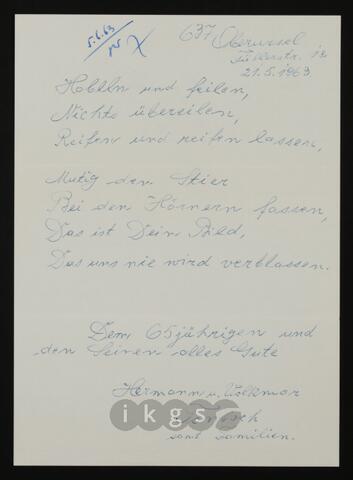 5.6.63
637 Oberursel
21.5.1963
Hobeln und feilen,
Nichts übereilen,
Reifen und reifen lassen,
Mutig den Stier
Bei den Hörnern fassen,
Das ist Dein Bild,
Das uns nie wird verblassen.
Dem 65 jährigen und
den Seinen alles Gute
Hermann u. Volkmar
samt Familien.
ikgs